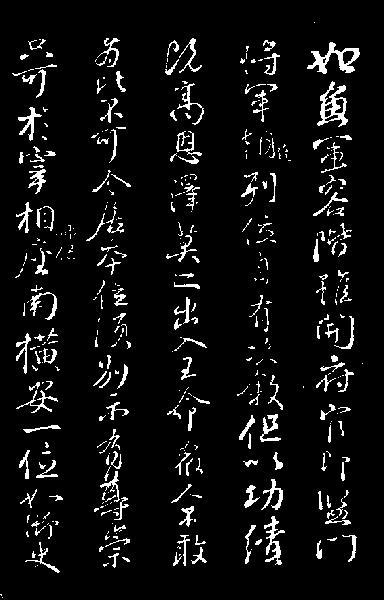 如魚軍容階雖開府官即監門
將軍朝廷列位自有次敘但以功績
既高恩澤莫二出入王命眾人不敢
為比不可令居本位須別示有尊崇
只可於宰相師保座南橫安一位如御史